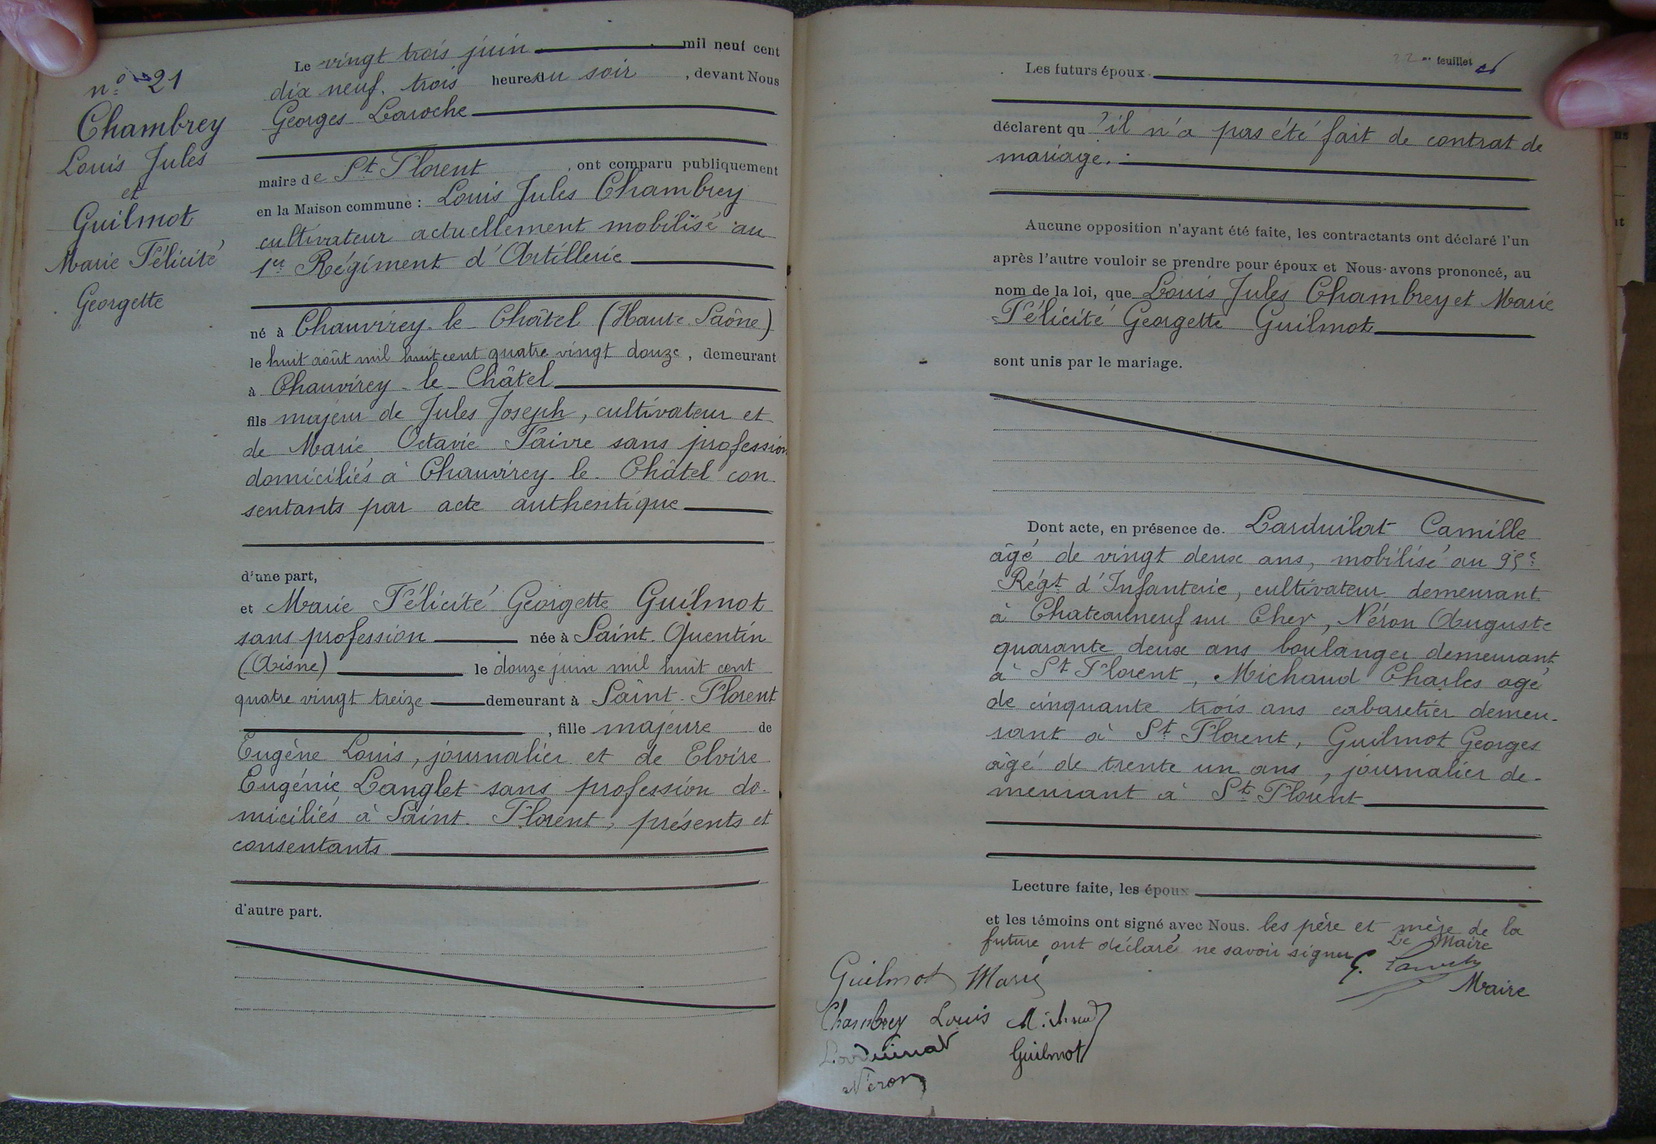 n° 21
Chambrey
Louis Jules
et
Guilmot
Marie Félicité
Georgette
Le vingt trois juin mil neuf cent
dix neuf. trois heure du soir, devant Nous
Georges Laroche
maire de St Florent, ont comparu publiquement
en la Maison commune : Louis Jules Chambrey
cultivateur actuellement mobilisé au
1er Régiment d'Artillerie
né à Chauvirey-le-Châtel (Haute Saône)
le huit août mil huit cent quatre vingt douze, demeurant
à Chauvirey-le-Châtel
fils majeur de Jules Joseph, cultivateur et
de Marie Octavie Faivre sans profession
domiciliés à Chauvirey-le-Châtel con-
sentants par acte authentique
d'une part,
et Marie Félicité Georgette Guilmot
sans profession née à Saint-Quentin
(Aisne) le douze juin mil huit cent
quatre vingt treize demeurant à Saint-Florent
, fille majeure de
Eugène Louis, journalier et de Elvire
Eugénie Langlet sans profession do-
miciliés à Saint-Florent, présents et
consentants
d'autre part.
22 me feuillet
Les futurs époux
déclarent qu'il n'a pas été fait de contrat de
mariage.
Aucune opposition n'ayant été faite, les contractants ont déclaré l'un
après l'autre vouloir se prendre pour époux et Nous avons prononcé, au
nom de la loi, que Louis Jules Chambrey et Marie
Félicité Georgette Guilmot
sont unis par le mariage.
Dont acte, en présence de. Larduinat Camille
âgé de vingt deux ans, mobilisé au 95e
Régt d'Infanterie, cultivateur demeurant
à Chateauneuf sur Cher, Néron Auguste
quarante deux ans boulanger demeurant
à St Florent, Michaud Charles agé
de cinquante trois ans cabaretier demeu-
rant à St Florent, Guilmot Georges
âgé de trente un ans, journalier de-
meurant à St Florent
Lecture faite, les époux
et les témoins ont signé avec Nous. les père et mère de la
future ont déclaré ne savoir signer
Le Maire
G. Laroche
Maire
Guilmot Marie
Chambrey Louis Michaud
Larduinat Guilmot
Néron